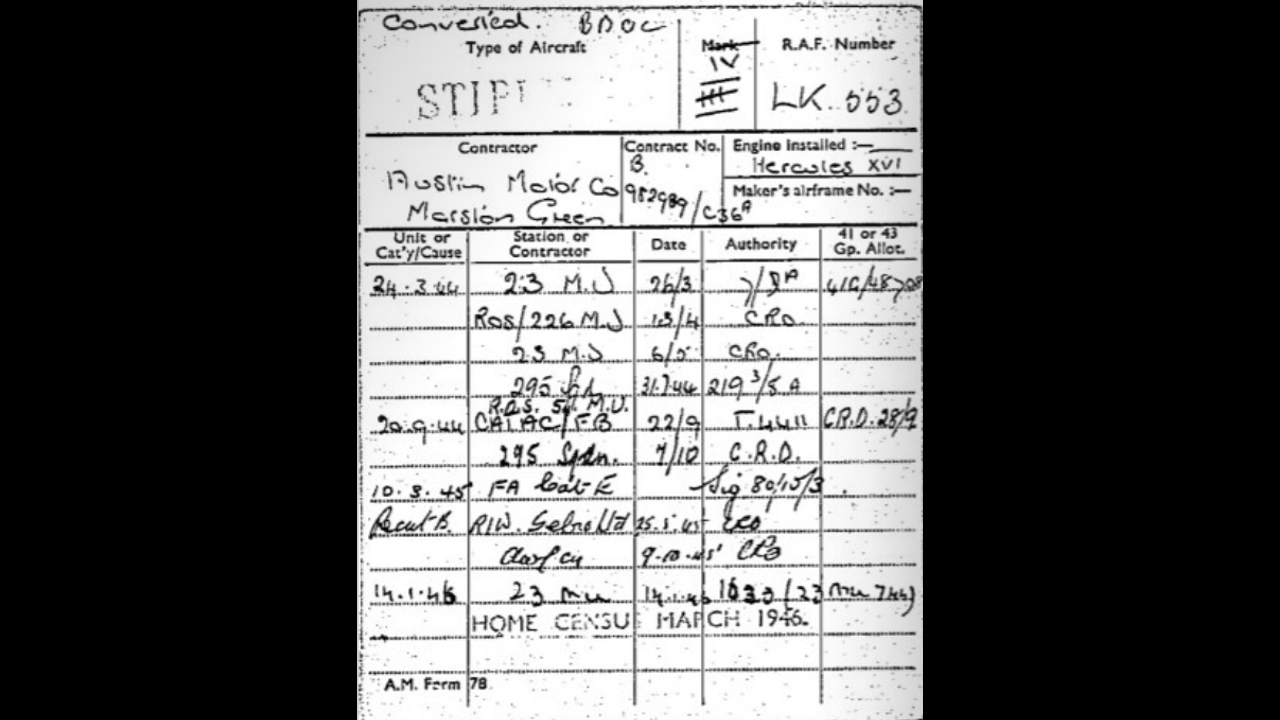 Converted.
Type of Aircraft
Mark
R.A.F. Number
IV
LK.553
Contractor
Contract No.
Engine installed :—
B.
Hercules XVI
Austin Motor Co
982989/C36A
Maker's airframe No. :—
Marston Green
Unit or Cat'y/Cause
Station or Contractor
Date
Authority
41 or 43 Gp. Allot.
24.3.44 23 M.U 26/3
ROS/226 M.U 13/4 CRO
23 M.U 6/5 CRO.
295 31.7.44 219 3/5 A
R.O.S. M.U.
20.9.44 22/9 T.4411 C.R.D. 28/9
295 Sqdn. 7/10 C.R.D.
10.3.45 FA Cat E Sig 80/15/3
Recat B. RIW. Sebro Ltd 25.5.45
9.10.45 CRO
14.1.46 23 mu 14.1.46
HOME CENSU MARCH 1946.
A.M. Form 78